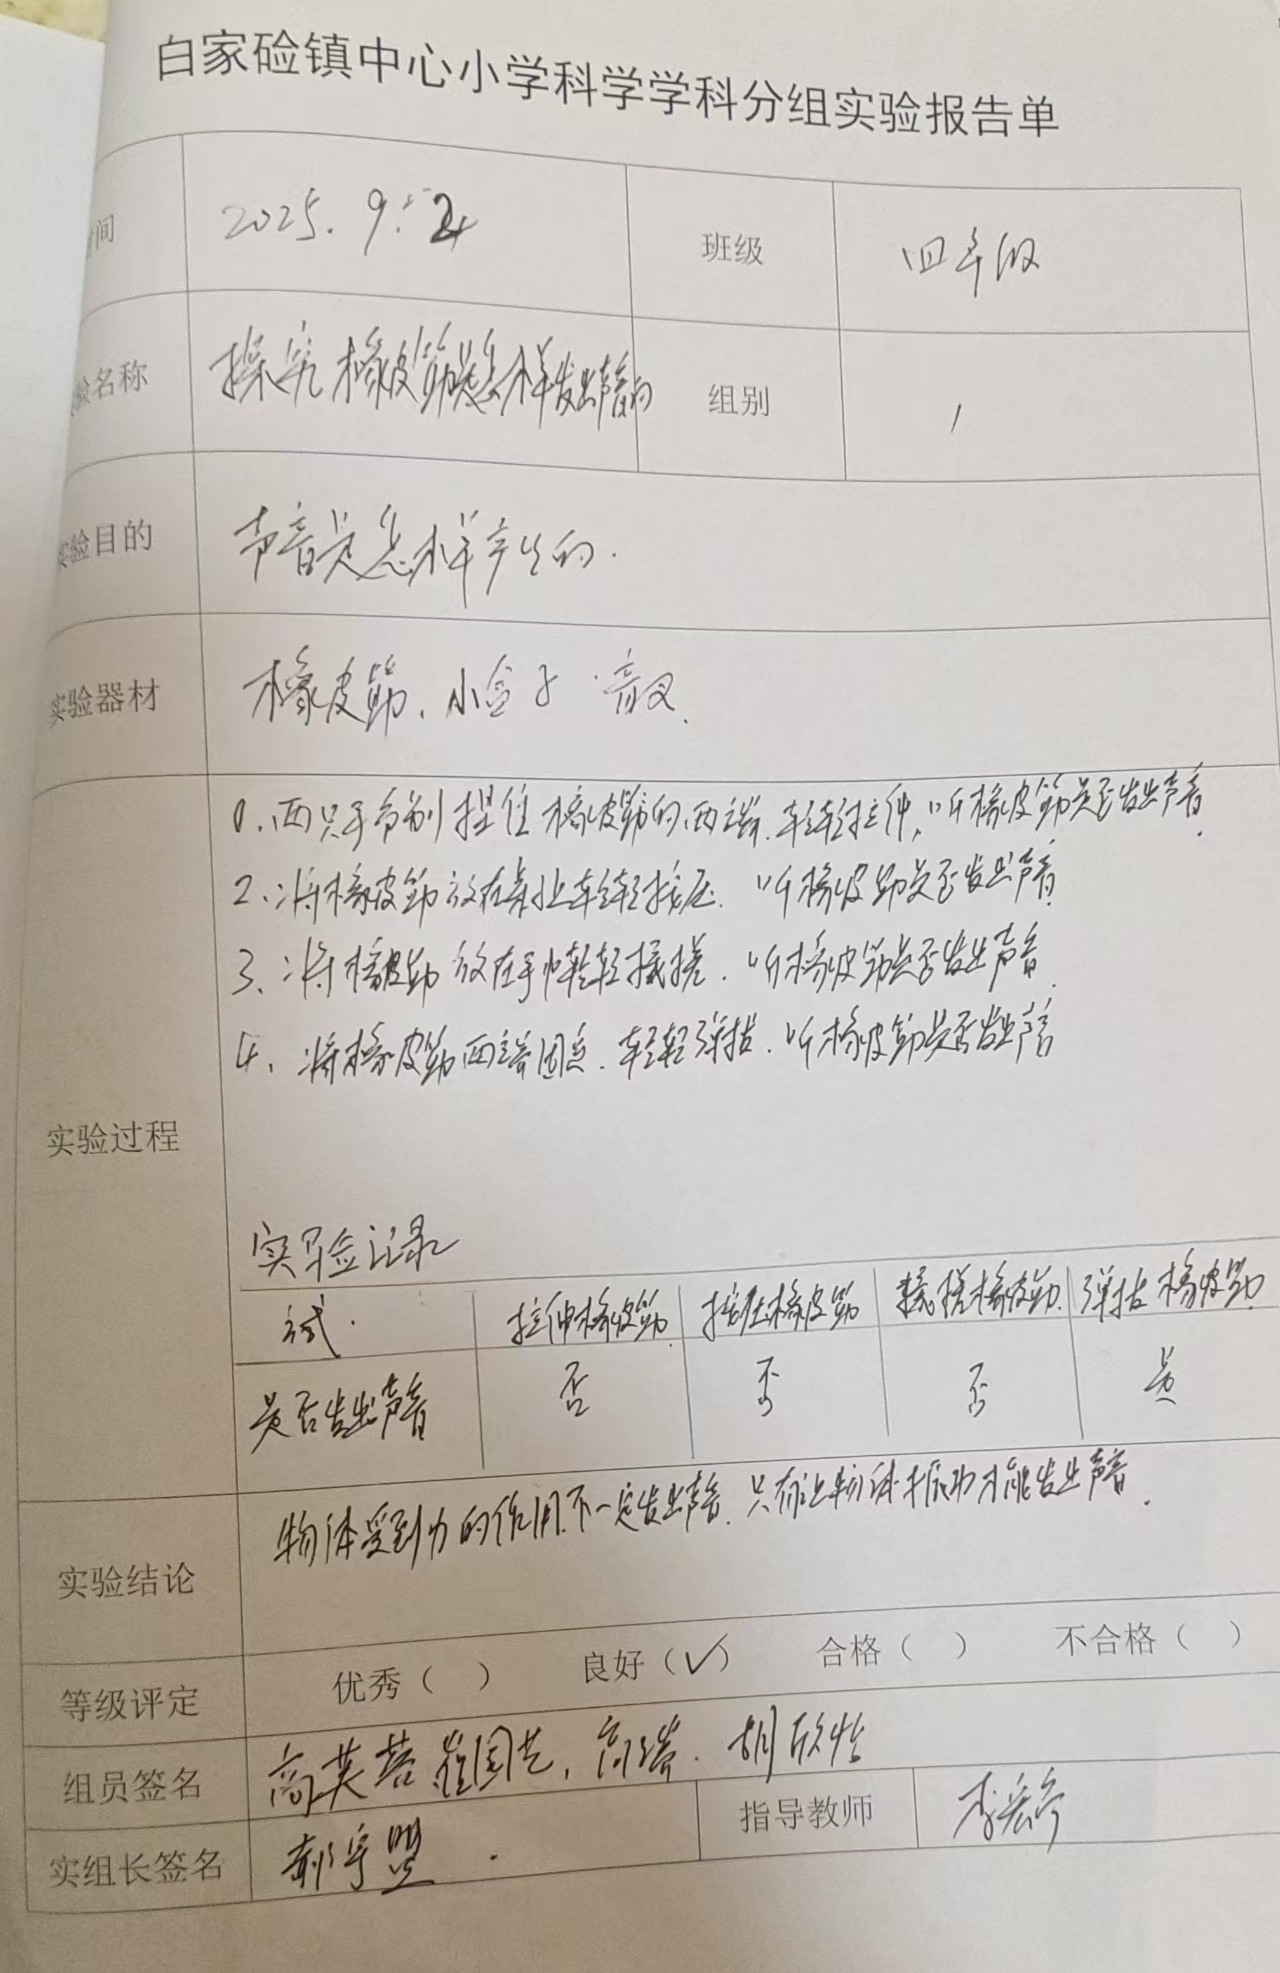 白家硷镇中心小学科学学科分组实验报告单
间 2025.9.24 班级 四年级
验名称 探究橡皮筋是怎样发出声音的 组别 1
实验目的 声音是怎样产生的.
实验器材 橡皮筋、小盒子 音叉.
1.两只手分别捏住橡皮筋的两端.轻轻拉伸,听橡皮筋是否发出声音.
2.将橡皮筋放在桌上轻轻按压.听橡皮筋是否发出声音.
3、将橡皮筋放在手中轻轻揉搓.听橡皮筋是否发出声音.
4、将橡皮筋两端固定.轻轻弹拨.听橡皮筋是否发出声音
实验过程
实验记录
方式. 拉伸橡皮筋 按压橡皮筋 揉搓橡皮筋 弹拨橡皮筋
是否发出声音 否 否 否 是
物体受到力的作用不一定发出声音.只有让物体振动才能发出声音.
实验结论
等级评定 优秀( ) 良好(✓) 合格( ) 不合格( )
组员签名 高芙蓉 崔国艺,高瑞.胡欣怡
实组长签名 郝宇盟. 指导教师 李